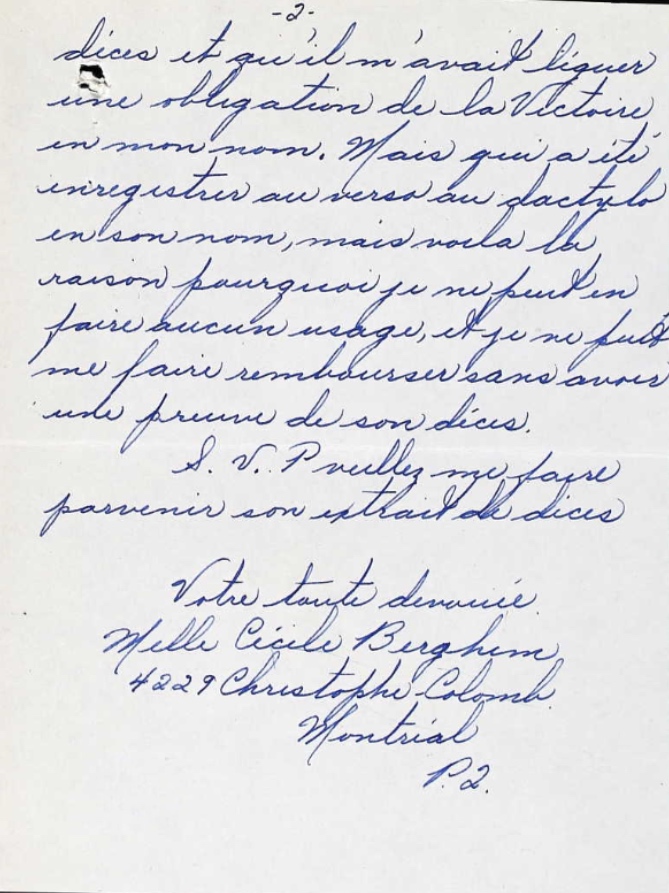 -2-
dices et qu'il m'avait liguer
une obligation de la Victoire,
en mon nom. Mais qui a été
enregistrer au verso au dactylo
en son nom, mais voila la
raison pourquoi je ne peut en
faire aucun usage, et je ne puit
me faire rembourser sans avoir
une preuve de son dices.
S. V. P veillez me faire
parvenir son extrait de dices
Votre toute devouée.
Melle Cécile Berghem,
4229 Christophe-Colomb.
Montréal
P.Q.